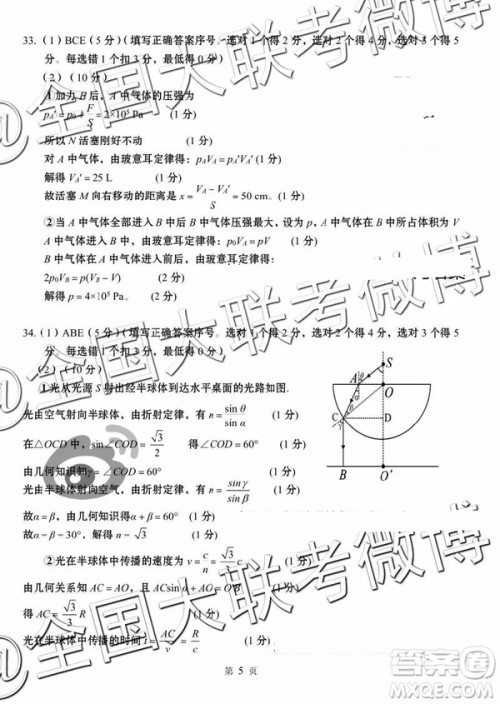 33. (1) BCE (5 分)(填写正确答案序号。选对 1 个得 2 分，选对 2 个得 4 分，选对 3 个得 5
分。每选错 1 个扣 3 分，最低得 0 分)
(2) (10 分)
①加力 F 后，A 中气体的压强为
p_A′=p₀+F/S=2×10⁵ Pa (1 分)
所以 N 活塞刚好不动 (1 分)
对 A 中气体，由玻意耳定律得：p_AV_A=p_A′V_A′(1 分)
解得 V_A′=25 L (1 分)
故活塞 M 向右移动的距离是 x=(V_A−V_A′)/S=50 cm。(1 分)
②当 A 中气体全部进入 B 中时，B 中气体压强最大，设为 p，A 中气体相当于体积为 V
A 中气体进入 B 中前后，由玻意耳定律得：p₀V_A=pV (1 分)
B 中气体在 A 中气体进入前后，由玻意耳定律得：
2p₀V_B=p(V_B−V) (1 分)
解得 p=4×10⁵ Pa。 (1 分)
34. (1) ABE (5 分)(填写正确答案序号。选对 1 个得 2 分，选对 2 个得 4 分，选对 3 个得 5
分。每选错 1 个扣 3 分，最低得 0 分)
(2) (10 分)
①光从光源 S 射出经半球体到达水平桌面的光路如图.
光由空气射向半球体，由折射定律，有 n=sin θ/sin α (1 分)
在△OCD 中，sin∠COD=√3/2 得∠COD=60° (1 分)
由几何知识知γ=∠COD=60° (1 分)
光由半球体射向空气，由折射定律，有 n=sin γ/sin β (1 分)
故α=β，由几何知识得α+β=60° (1 分)
故α=β=30°。 (1 分)
②光在半球体中传播的速度为 v=c/n=√3/3 c (1 分)
由几何关系知 AC=AO，且 ACsin α+AO=R (1 分)
得 AC=√3/R
光在半球体中传播的时间 t=AC/v=R/c (1 分)
S
A
O
C
D
B
O′
第 5 页
@全国大联考微博
@全国大联考微博
@全国大联考微博
答案圈
MXQE.COM